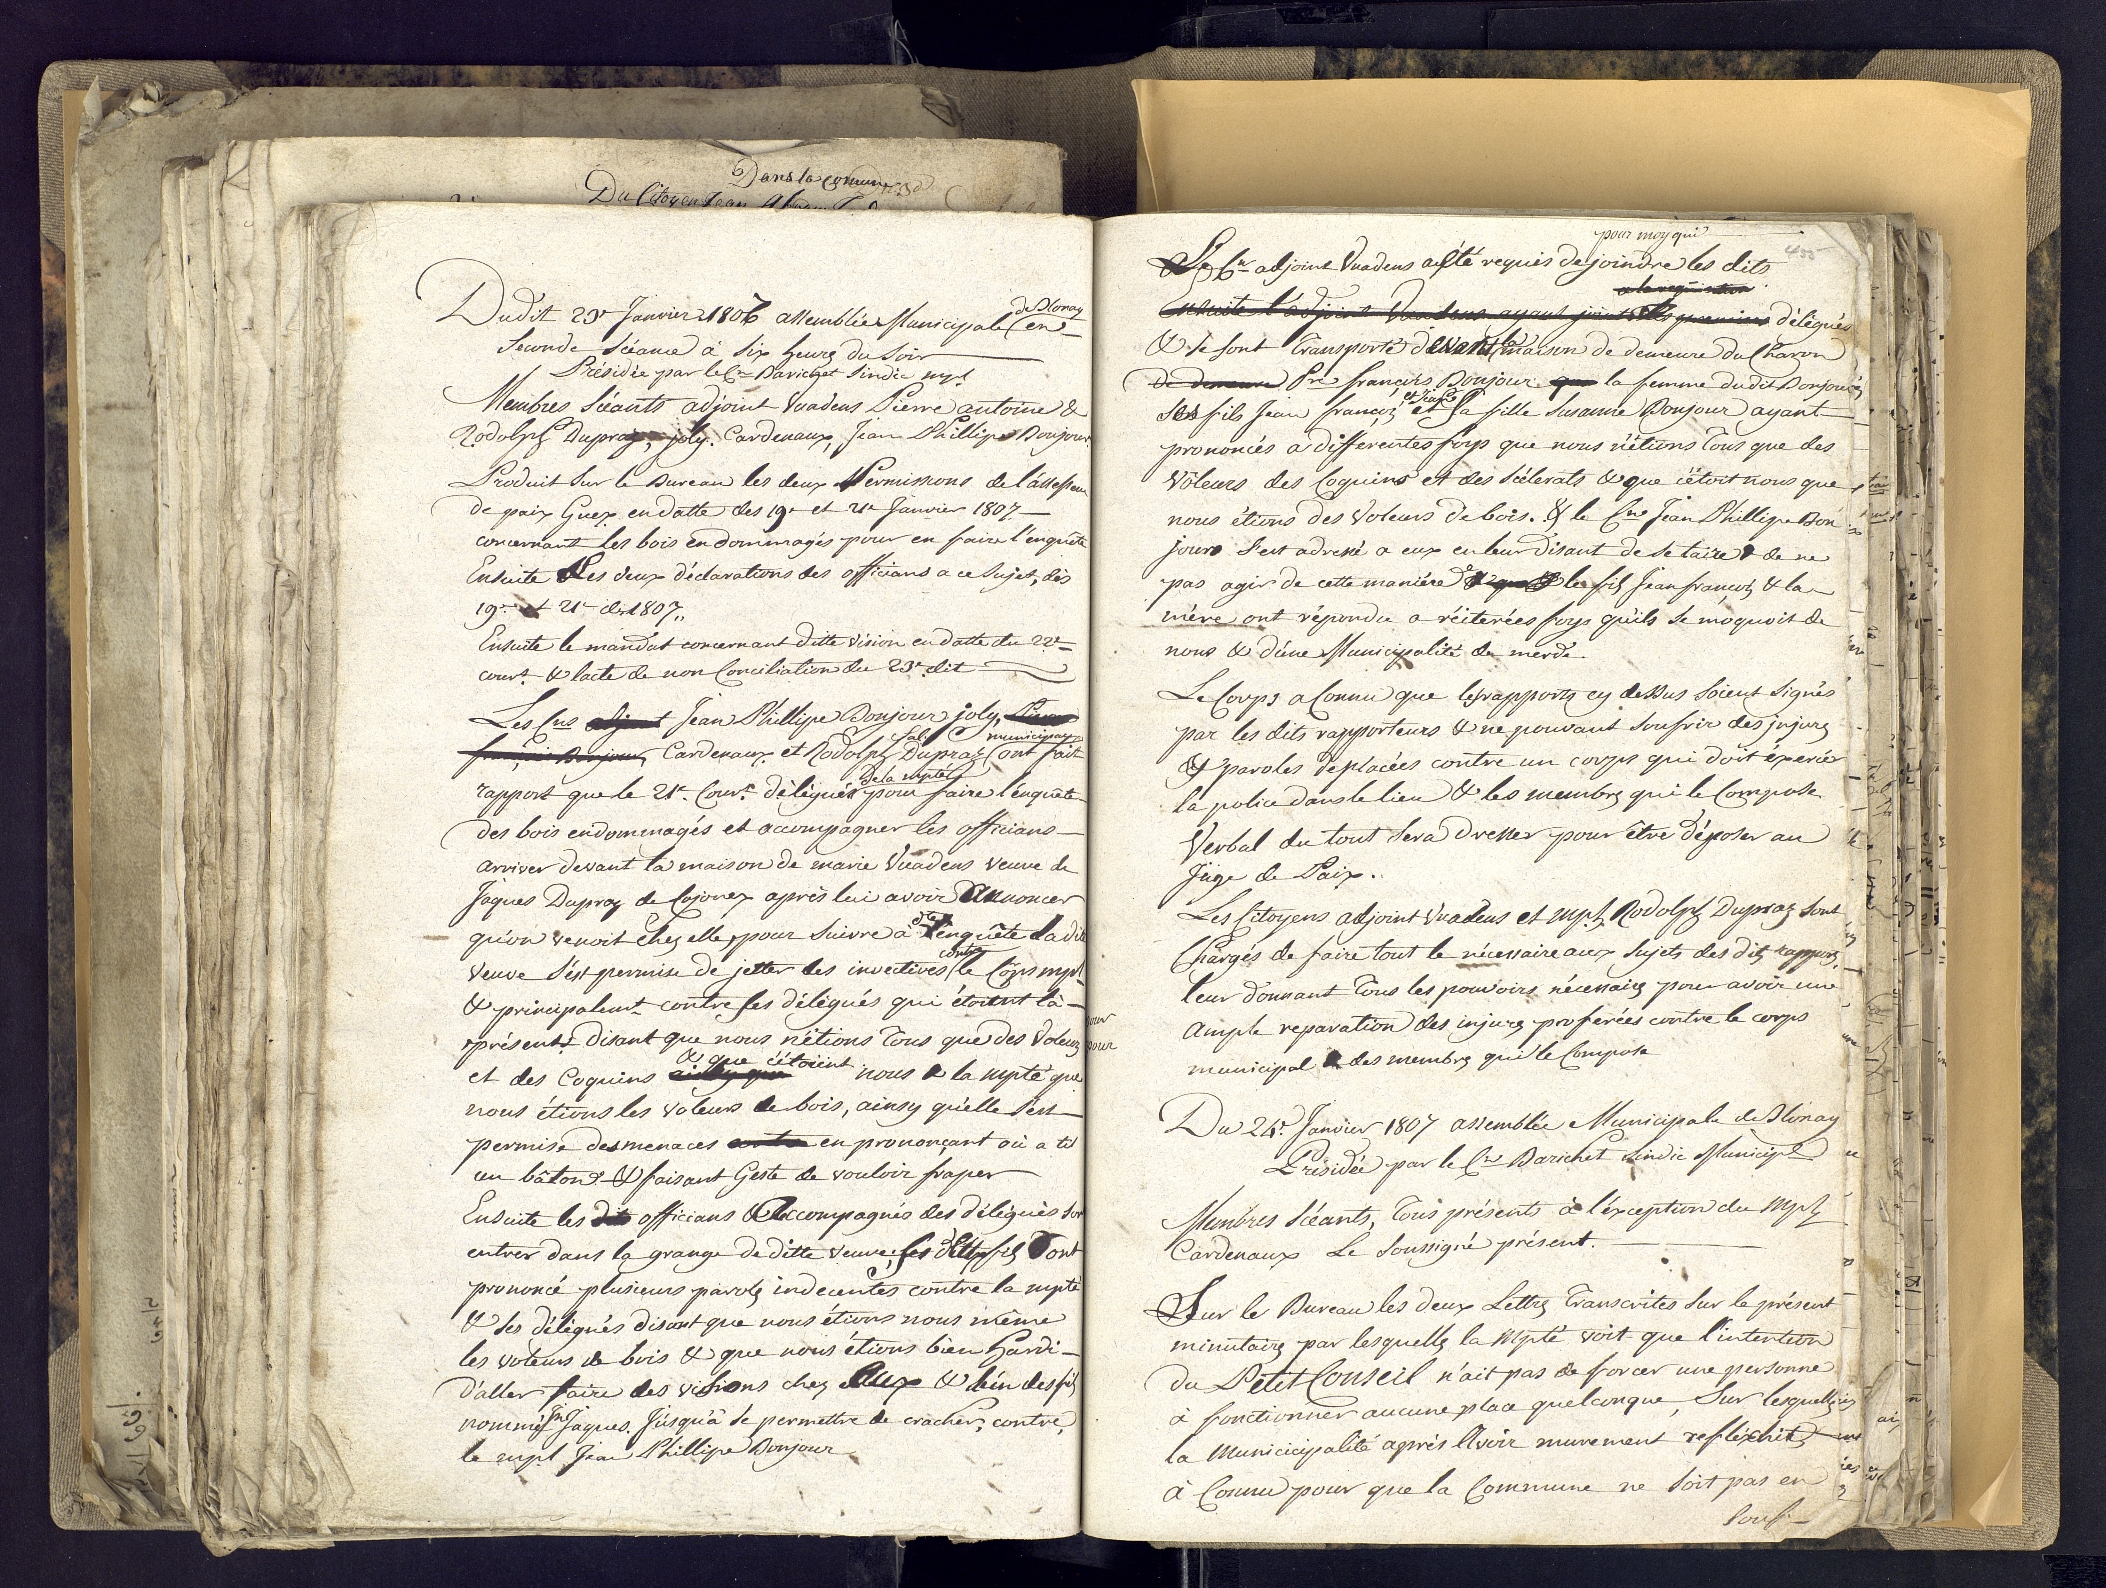 Dans la comune
Du Citoyen Jean
Dudit 23e Janvier 1807 assemblée Municipale de Blonay en
Seconde Séance à Six heures du Soir
Présidée par le Cn Barichet Sindic mpl
Membres Séants adjoint Vuadens Pierre antoine &
Rodolph Dupraz, joly. Cardenaux, Jean Phillipe Bonjour
Produit Sur le Bureau les deux Permissions de l'assesseur
de paix Guex en datte des 19e et 21e Janvier 1807 —
concernant les bois endommagés pour en faire l'enquête
Ensuite Les deux déclarations des officians a ce Sujet, dès
19e et 21e de 1807,,
Ensuite le mandat concernant ditte vision en datte du 22e
court & lacte de non Conciliation du 23e dit
Les Cns adjoint Jean Phillipe Bonjour joly, Pierre
françois Bonjour Cardenaux et Rodolph fal Dupraz municipaux ont fait
rapport que le 21e Court délégués de la mpté pour faire l'enquête
des bois endommagés et accompagner les officians —
arriver devant la maison de marie Vuadens veuve de
Jaques Dupraz de Cojonex après lui avoir Annoncer
qu'on venoit chez elle pour Suivre à dte l'enquête Ladite
veuve S'est permise de jetter des invectives contre le Corps mpl
& principalemt contre ses délégués qui étoient là —
présents Disant que nous n'étions Tous que des Voleurs
et des Coquins & que c'étoient nous & la mpté que
nous étions les voleurs de bois, ainsy qu'elle S'est
permise des menaces contre en prononçant où a ti
un bâton & faisant Geste de vouloir fraper
Ensuite les dits officians & Accompagnés des délégués sont
entrer dans la grange de ditte veuve, ses fils Sont
prononcé plusieurs paroles indecentes contre la mpté
& Ses délégués disant que nous étions nous même
les voleurs de bois & que nous étions bien Hardi —
d'aller faire des visions chez Eux & l'un des fils
nommé Jn Jaques. Jusqu'à Se permettre de cracher contre
le mpl Jean Phillipe Bonjour
pour moy qui
Le Cn adjoint Vuadens a été requis de joindre les dits
a la requisition
Ensuite l'adjoint Vuadens ayant joint les premiers délégués
& se sont Transporté devant la maison de demeure du Charon
de demeure Pre françois Bonjour que la femme dudit Bonjour,
Ses fils Jean françois et Isaac et Sa fille Susanne Bonjour ayant
prononcés a differentes foys que nous n'étions Tous que des
Voleurs des Coquins et des Scélerats & que c'étoit nous que
nous étions des Voleurs de bois. & le Cne Jean Phillipe Bon
jour S'est adressé a eux en leur Disant de Se taire & de ne
pas agir de cette manière le fils Jean françois & la
mère ont répondu a réiterées foys qu'ils se môquoit de
nous & d'une Municipalité de merde.
Le Corps a Connu que les rapports cy dessus Soient Signés
par les dits rapporteurs & ne pouvant Soufrir des injures
& paroles déplacées contre un corps qui doit éxercer
la police dans le lieu & les membres qui le Compose
Verbal du tout Sera Dresser pour être déposer au
Juge de Paix.
Les Citoyens adjoint Vuadens et mpl Rodolph Dupraz Sont
Chargés de faire tout le nécessaire aux Sujets des dits rapports,
leur donnant Tous les pouvoirs nécessaires pour avoir une
Ample reparation des injures proferées contre le corps
municipal & des membres qui le Compose
Du 24e Janvier 1807 assemblée Municipale de Blonay
Présidée par le Cn Barichet Sindic Municipl
Membres Séants, Tous présents à l'exception du Mpl
Cardenaux Le Soussigné présent.
Sur le Bureau les deux Lettres Transcrites Sur le présent
minutaire par lesquelles la Mpté voit que l'intention
du Petit Conseil n'ait pas de forcer une personne
à fonctionner aucune place quelconque, Sur lesquelles
la Municicipalité après Avoir murement refléxhit
à Connu pour que la Commune ne Soit pas en
Souf-